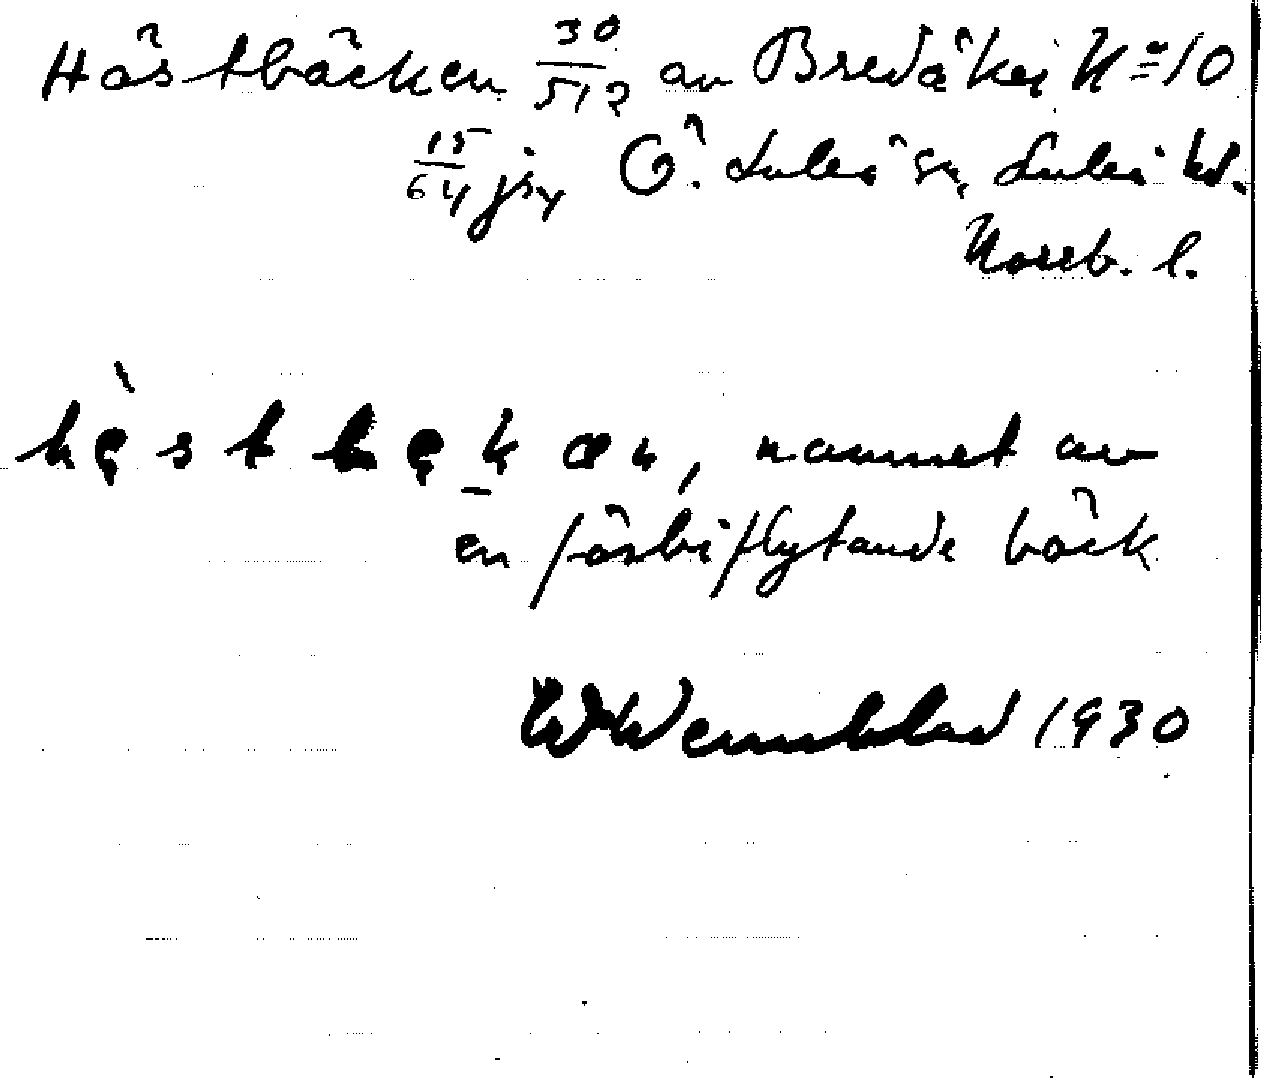 Hästbäcken 30/512 av Bredåker N=10
15/64 jsn Ö. Luleå sn, Luleå td.
Norrb. l.
hę̀stbęk̠ən, namnet av
en förbiflytande bäck
W Wennblad 1930